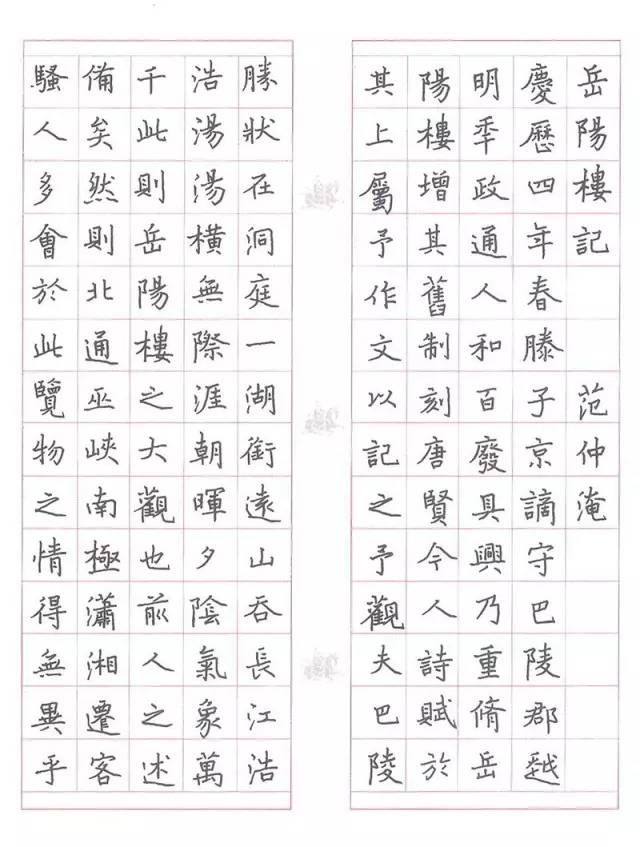 岳陽樓記 范仲淹
慶歷四年春滕子京謫守巴陵郡越
明秊政通人和百廢具興乃重脩岳
陽樓增其舊制刻唐賢今人詩賦於
其上屬予作文以記之予觀夫巴陵
勝狀在洞庭一湖銜遠山吞長江浩
浩湯湯橫無際涯朝暉夕陰氣象萬
千此則岳陽樓之大觀也前人之述
備矣然則北通巫峽南極瀟湘遷客
騷人多會於此覽物之情得無異乎